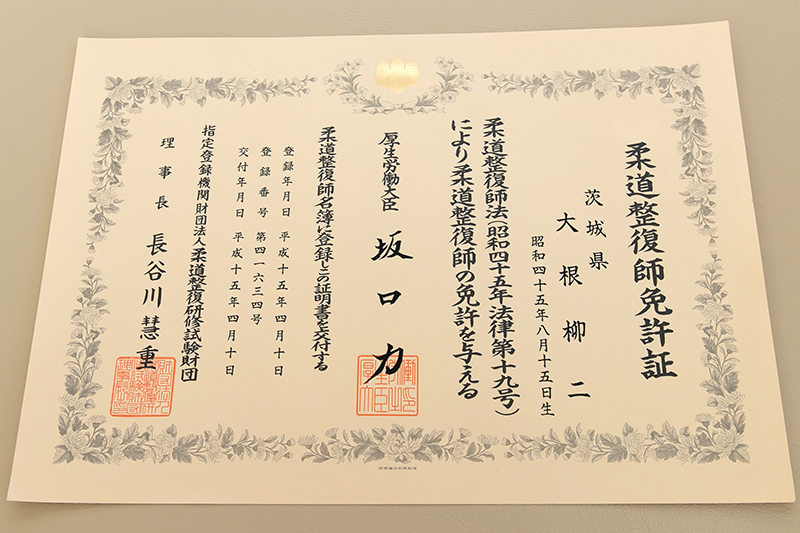 柔道整復師免許証
茨城県
大根柳二
昭和四十五年八月十五日生
柔道整復師法(昭和四十五年法律第十九号)
により柔道整復師の免許を与える
厚生労働大臣 坂口力
柔道整復師名簿に登録しこの証明書を交付する
登録年月日 平成十五年四月十日
登録番号 第四一六三四号
交付年月日 平成十五年四月十日
指定登録機関財団法人柔道整復研修試験財団
理事長 長谷川慧重